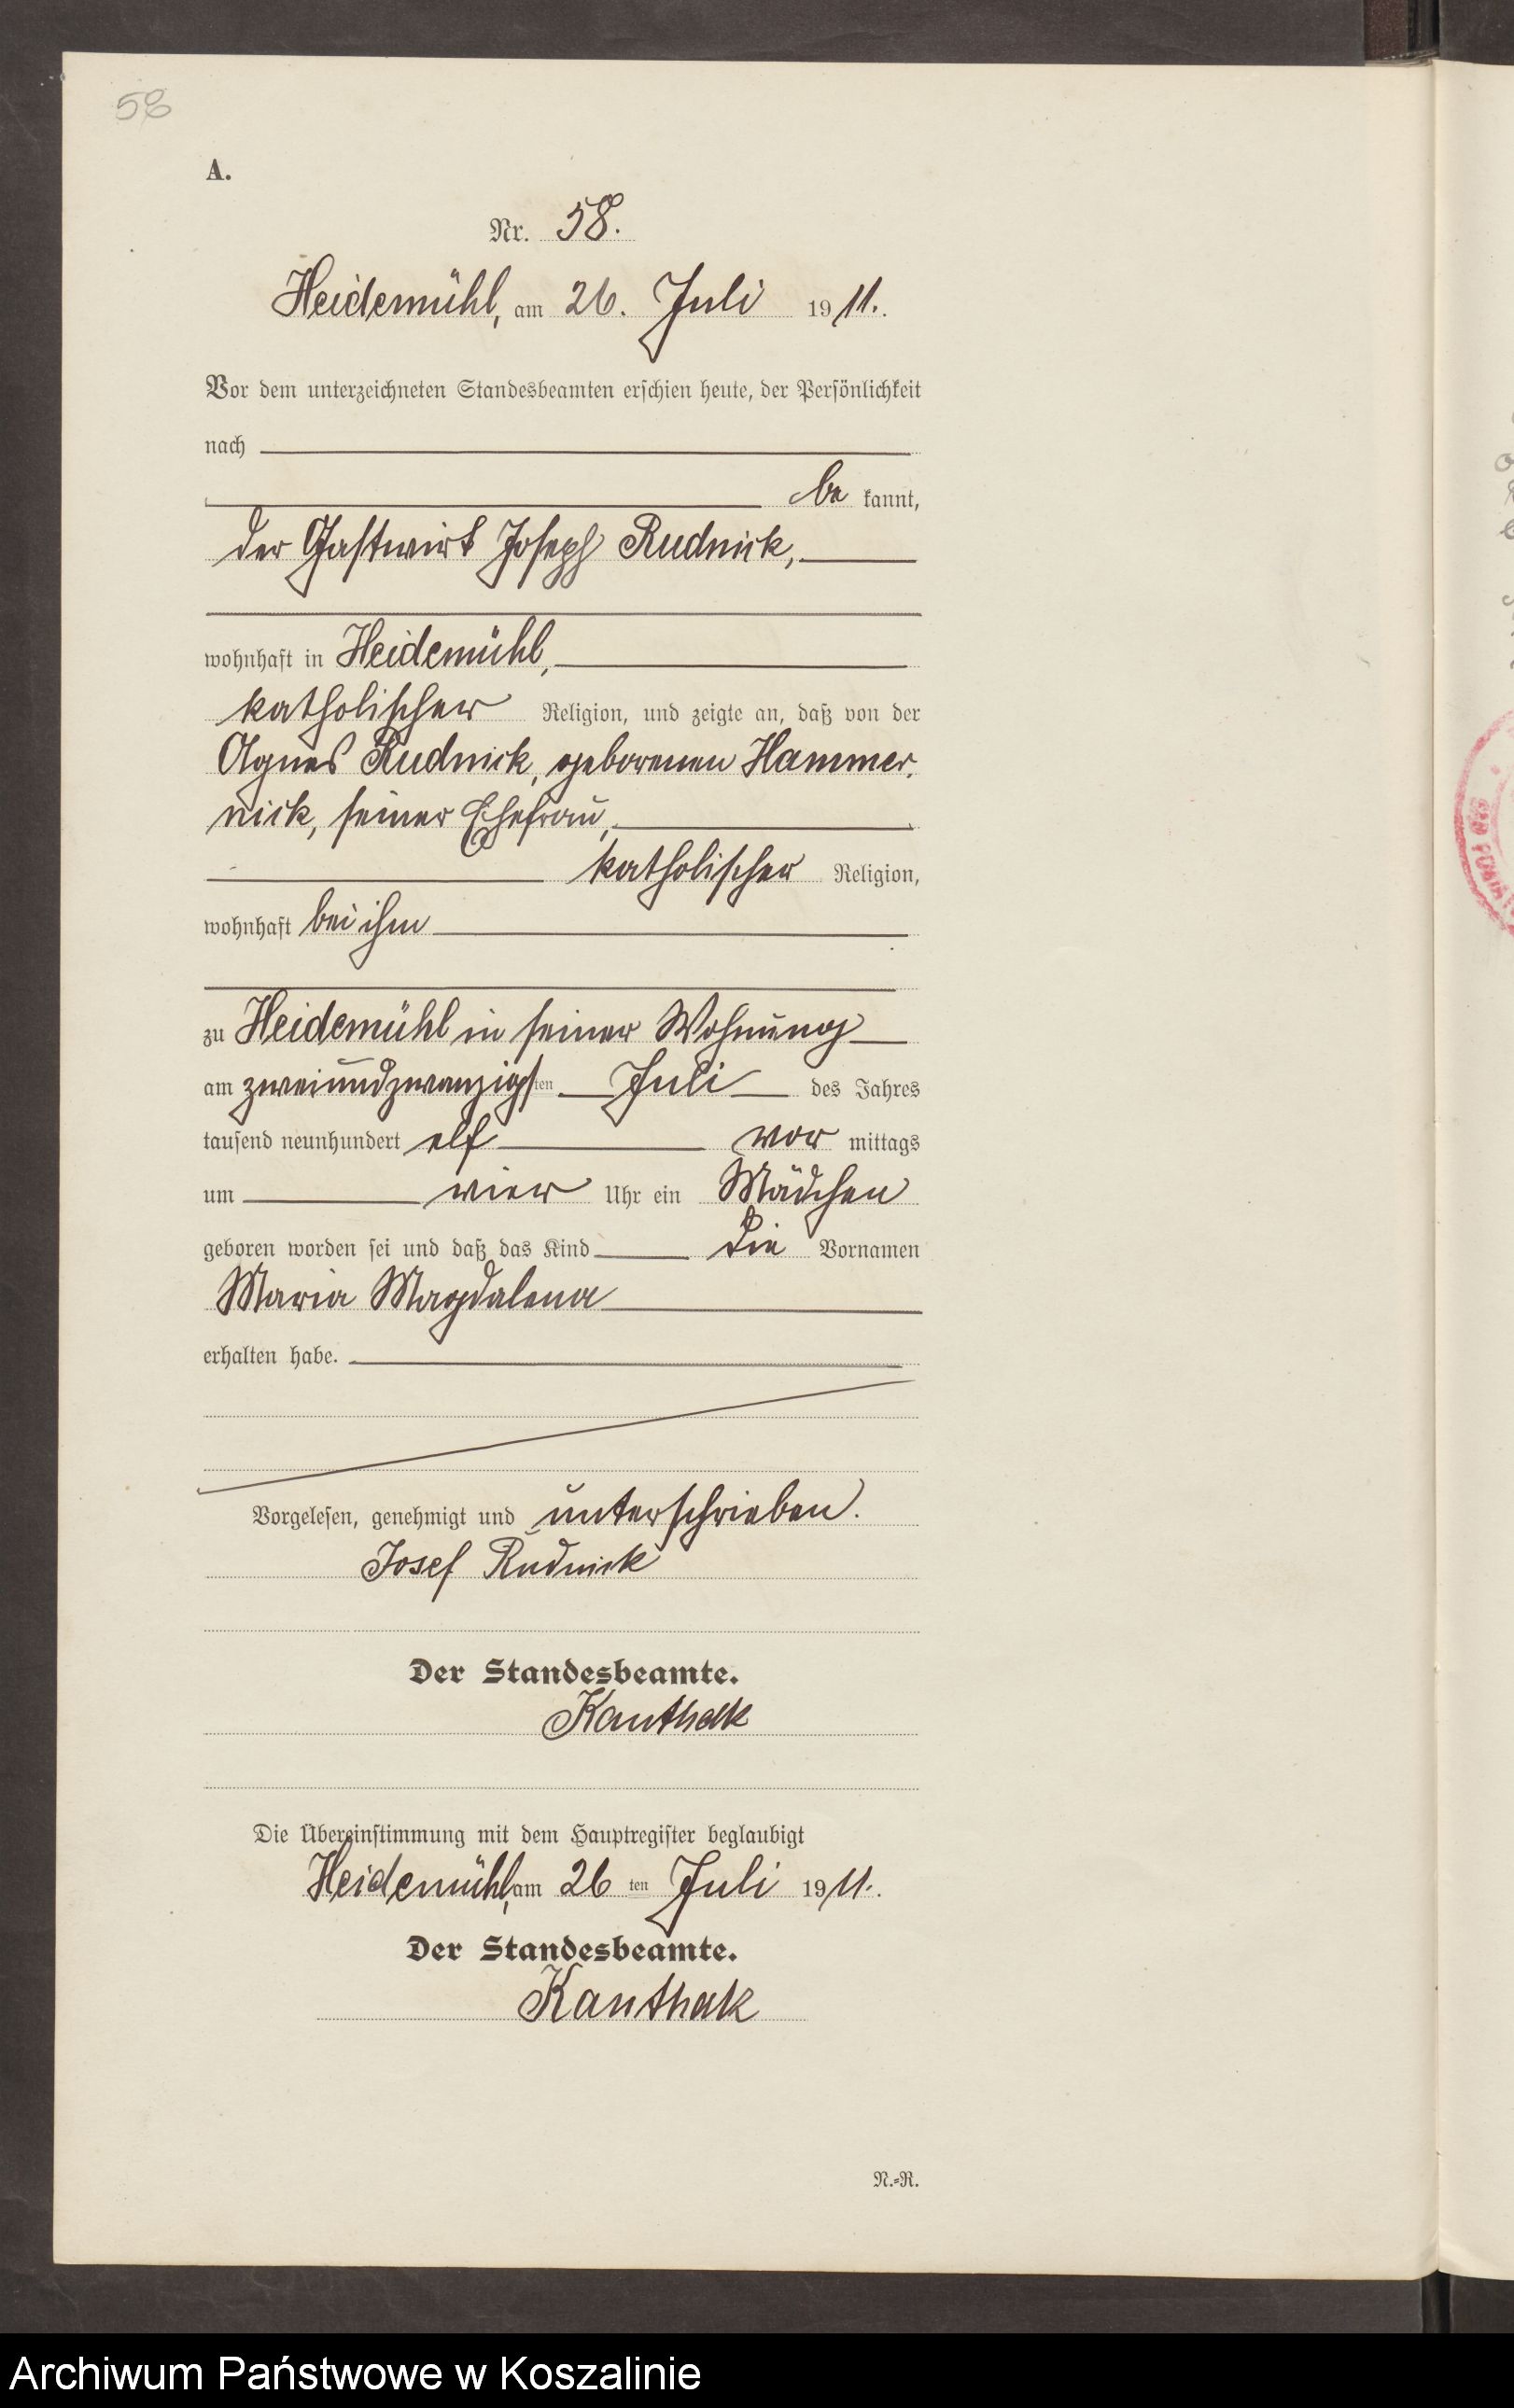 58
A.
Nr. 58.
Heidemühl, am 26. Juli 1911.
Vor dem unterzeichneten Standesbeamten erschien heute, der Persönlichkeit
nach
be kannt,
der Gastwirt Joseph Rudnick,
wohnhaft in Heidemühl,
katholischer Religion, und zeigte an, daß von der
Agnes Rudnick, geborenen Hammer-
nick, seiner Ehefrau,
katholischer Religion,
wohnhaft bei ihm
zu Heidemühl in seiner Wohnung
am zweiundzwanzigsten Juli des Jahres
tausend neunhundert elf vor mittags
um vier Uhr ein Mädchen
geboren worden sei und daß das Kind die Vornamen
Maria Magdalena
erhalten habe.
Vorgelesen, genehmigt und unterschrieben.
Josef Rudnick
Der Standesbeamte.
Kanthak
Die Übereinstimmung mit dem Hauptregister beglaubigt
Heidemühl, am 26 ten Juli 1911.
Der Standesbeamte.
Kanthak
N.-R.
Archiwum Państwowe w Koszalinie